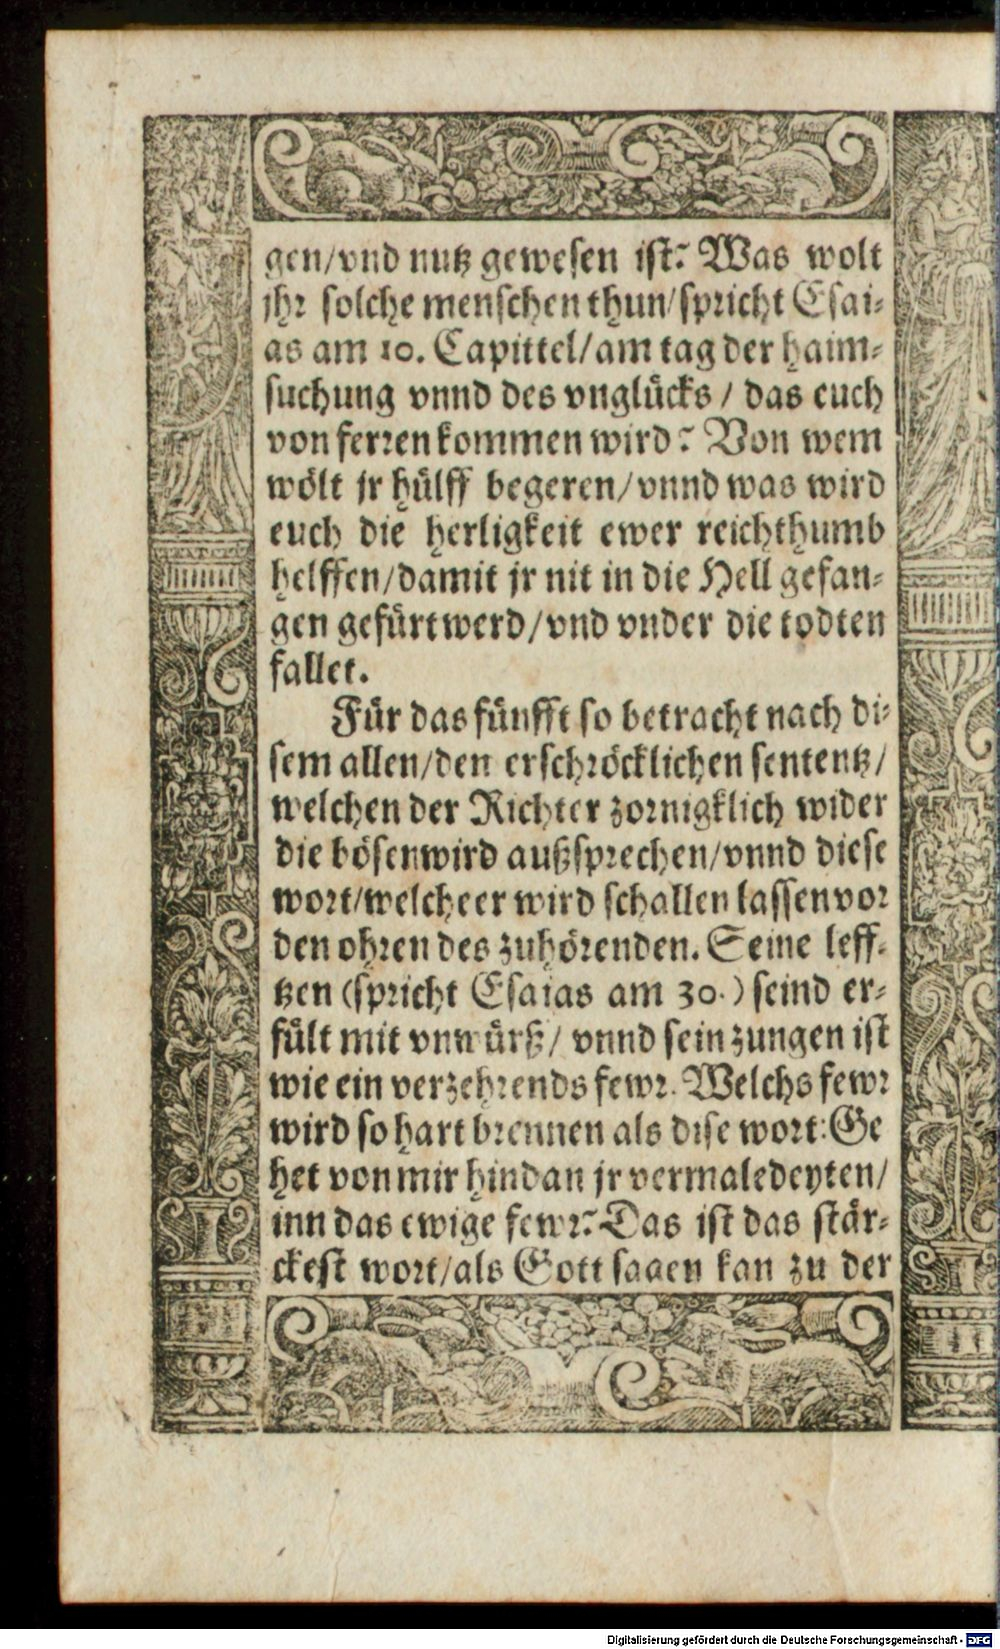 gen/vnd nutz gewesen ist? Was wolt
jhr solche menschen thun/spricht Esai-
as am 10. Capittel/am tag der haim-
suchung vnnd des vnglücks / das euch
von ferren kommen wird? Von wem
wölt jr hülff begeren/vnnd was wird
euch die herligkeit ewer reichthumb
helffen/damit jr nit in die Hell gefan-
gen gefürt werd/vnd vnder die todten
fallet.
Für das fünfft so betracht nach di-
sem allen/den erschröcklichen sententz/
welchen der Richter zornigklich wider
die bösen wird außsprechen/vnnd diese
wort/welche er wird schallen lassen vor
den ohren des zuhörenden. Seine leff-
tzen (spricht Esaias am 30.) seind er-
fült mit vnwürß/ vnnd sein zungen ist
wie ein verzehrends fewr. Welchs fewr
wird so hart brennen als dise wort: Ge
het von mir hindan jr vermaledeyten/
inn das ewige fewr? Das ist das stär-
ckest wort/als Gott sagen kan zu der
Digitalisierung gefördert durch die Deutsche Forschungsgemeinschaft - DFG